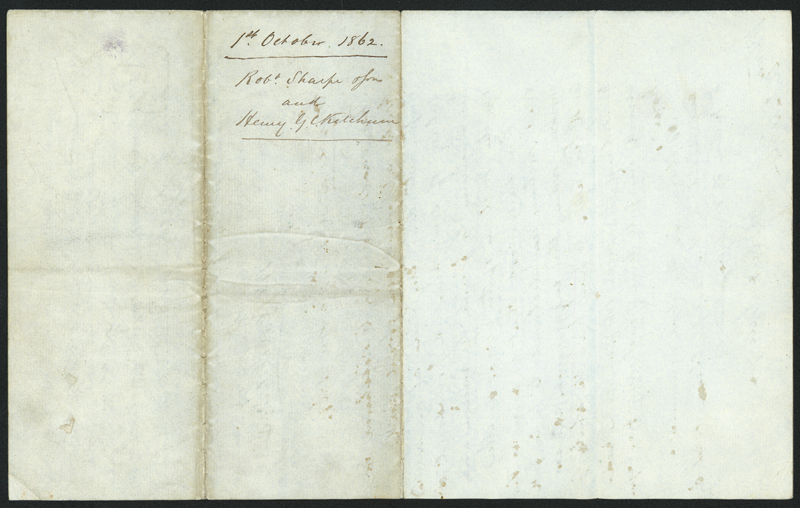 1st October. 1862.
Robt Sharpe & Sons
and
Henry G. C. Ketchum